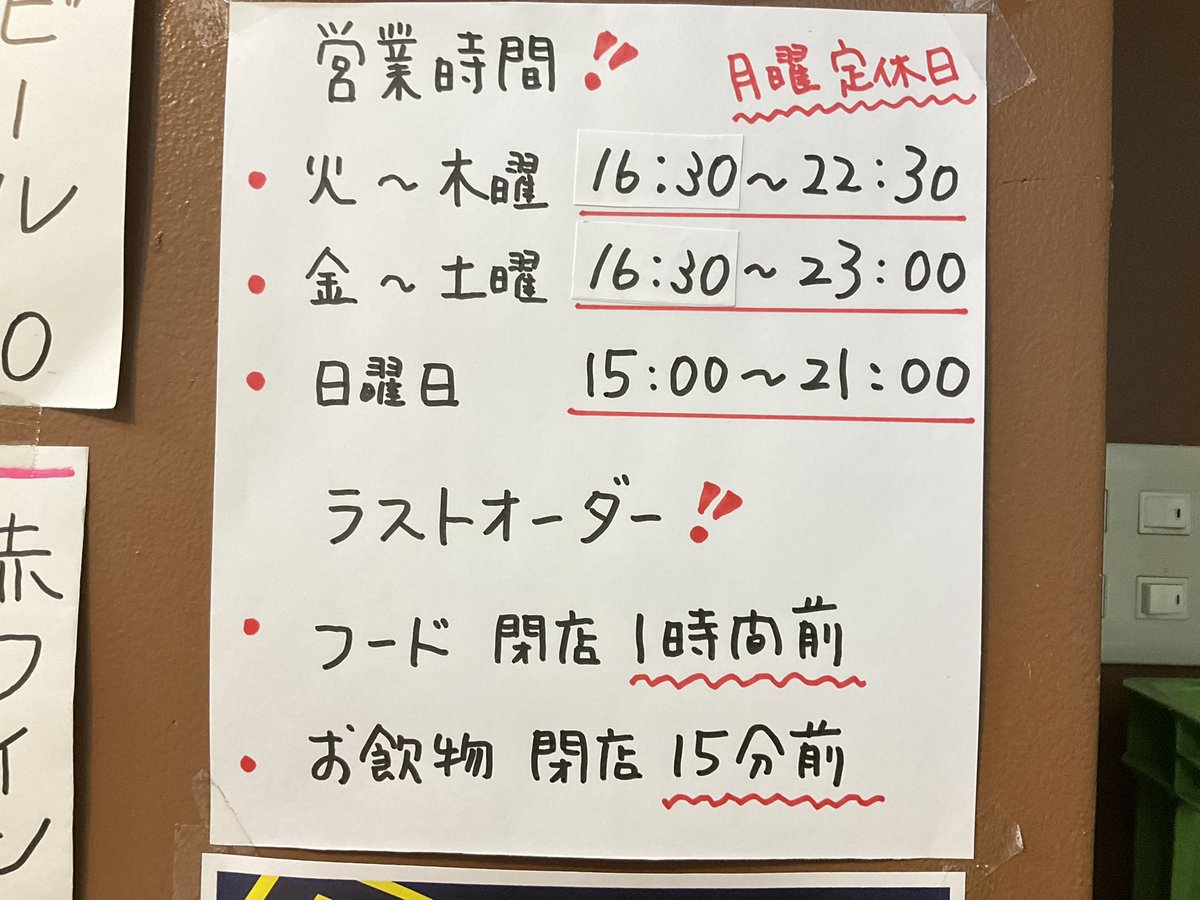 営業時間!!
月曜 定休日
・火～木曜 16:30～22:30
・金～土曜 16:30～23:00
・日曜日 15:00～21:00
ラストオーダー!!
・フード 閉店 1時間前
・お飲物 閉店 15分前
ビール
0
赤ワイン